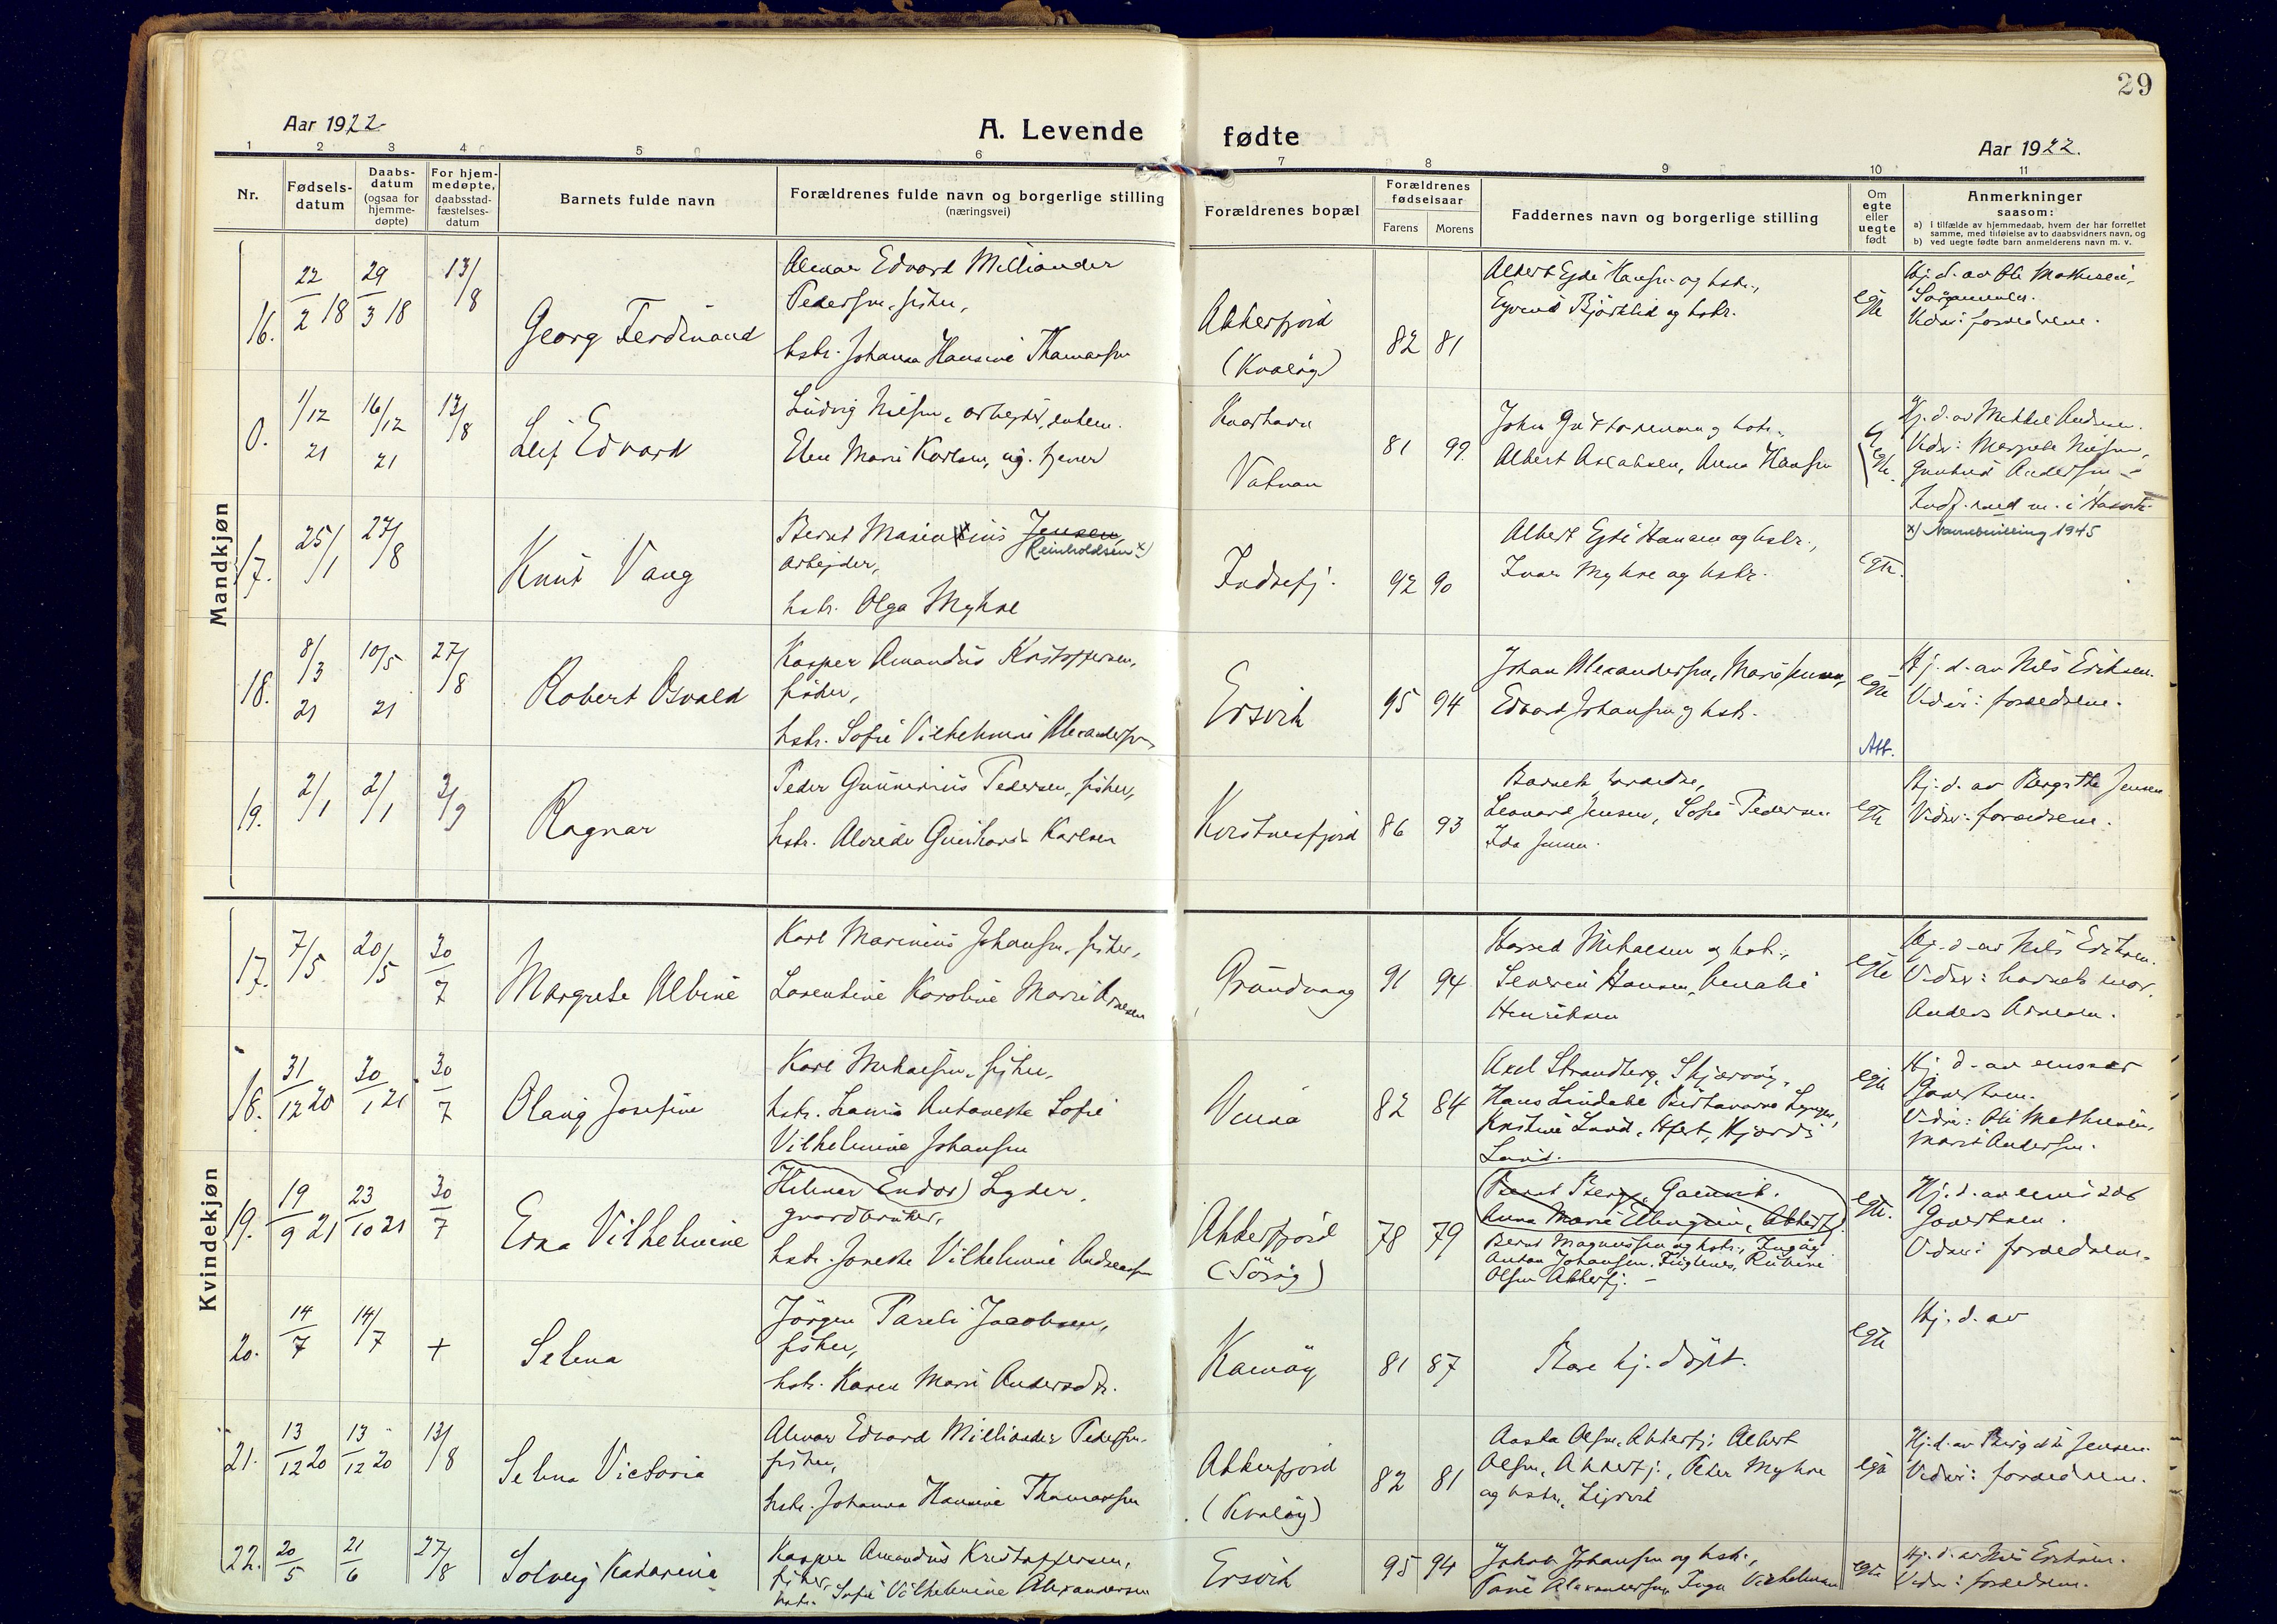 29
Aar 1922
A. Levende fødte
Aar 1922.
1 2 3 4 5 6 7 8 9 10 11
Nr.
Fødsels-
datum
Daabs-
datum
(ogsaa for
hjemme-
døpte)
For hjem-
medøpte,
daabsstad-
fæstelses-
datum
Barnets fulde navn
Forældrenes fulde navn og borgerlige stilling
(næringsvei)
Forældrenes bopæl
Forældrenes
fødselsaar
Farens Morens
Faddernes navn og borgerlige stilling
Om
egte
eller
uegte
født
Anmerkninger
saasom:
a) i tilfælde av hjemmedaab, hvem der har forrettet
samme, med tilføielse av to daabsvidners navn, og
b) ved uegte fødte barn anmelderens navn m. v.
Mandkjøn
16.
22/2 18
29/3 18
13/8
Georg Ferdinand
Edvard Milliander
Pedersen, fisker,
hstr. Johanna Hansine Thomassen
Akkerfjord
(Kvaløy)
82 81
Albert Ejde Hansen og hstr.,
Eyvind Bjørklid og hstr.
egte
Hj. d. av Ole Mathisen,
Vidner: forældrene.
0.
1/12
21
16/12
21
13/8
Leif Edvard
Ludvig Nilsen, arbejder, enkem.
Elen Marie Karlsen, ug. tjener
Kvarhavn
Vatnan
81 99
John og hstr.,
Albert Aslaksen, Anna Hansen
Hj. d. av Andersen.
Vidn: Margrete Nilsen,
Andersen –
Indf. med nr. i
17.
25/1
27/8
Knut Vang
Bernt Jensen,
Reinholdsen x)
arbejder,
hstr. Olga Myhre
Indrefj.
92 90
Albert Ejde Hansen og hstr.,
Ivar Myhre og hstr.
egte.
x) Navnebevilling 1945
18.
8/3
21
10/5
21
27/8
Robert Osvald
Kasper Amandus Kristoffersen,
fisker,
hstr. Sofie Vilhelmine Alexandersen
Ersvik
95 94
Johan Alexandersen, Marie Jensen,
Edvard Johansen og hstr.
egte
Hj. d. av Nils Eriksen.
Vidner: forældrene.
Att.
19.
2/1
2/1
3/9
Ragnar
Peder Gunnerius Pedersen, fisker,
hstr. Alvide Karlsen
Korsnesfjord
86 93
Barnets forældre,
Leonard Jensen, Sofie Pedersen
Ida Jensen.
egte
Hj. d. av Bergitte Jensen
Vidner: forældrene.
Kvindekjøn
17.
7/5
20/5
30/7
Margrete Albine
Karl Marinius Johansen, fisker,
Lorentine Karoline Marie Arnesen
Grundvaag
91 94
Mikalsen og hstr.,
Severin Hansen, Amalie
Henriksen
egte
Hj. d. av Nils Eriksen.
Vidner: barnets mor,
Anders Arnesen.
18.
31/12 20
30/1 21
30/7
Olaug Josefine
Karl Mikalsen, fisker,
hstr. Laura Antonette Sofie
Vilhelmine Johansen
82 84
Axel Strandberg, Skjervøy,
Hans Lindahl
Kristine Lund, Hfest, Hjørdis
Lund.
egte
Hj. d. av emissær
Vidner: Ole Mathisen,
Marit Andersen.
19.
19/9 21
23/10 21
30/7
Erna Vilhelmine
(Hilmar Endor) Lyder,
gaardbruker,
hstr. Jonette Vilhelmine Andreassen
Akkerfjord
(Sørøy)
78 79
Bernt Berg,
Anna Marie Ellingsen, Akkerfj.
Bernt Magnussen og hstr., Ingøy
Anton Johansen, Fuglenes,
Olsen Akkerfj. –
egte.
Hj. d. av emissær
Vidner: forældrene.
20.
14/7
14/7
+
Selma
Jørgen Pareli Jacobsen,
fisker,
hstr. Karen Marie Andersdtr.
Kamøy
81 87
Bare hj. døpt.
egte
Hj. d. av
21.
13/12 20
13/12 20
13/8
Selma Victoria
Edvard Milliander Pedersen,
fisker,
hstr. Johanna Hansine Thomassen
Akkerfjord
(Kvaløy)
82 81
Aasta Olsen, Akkerfj., Albert
Olsen, Akkerfj., Peter Myhre
og hstr.,
egte
Hj. d. av Bergitte Jensen.
Vidner: forældrene.
22.
20/5
21/6
27/8
Solveig Katarina
Kasper Amandus Kristoffersen,
fisker,
hstr. Sofie Vilhelmine Alexandersen
Ersvik
95 94
Jakob Johansen og hstr.,
Alexandersen, Inga Vilhelmsen
egte
Hj. d. av Nils Eriksen.
Vidner: forældrene.